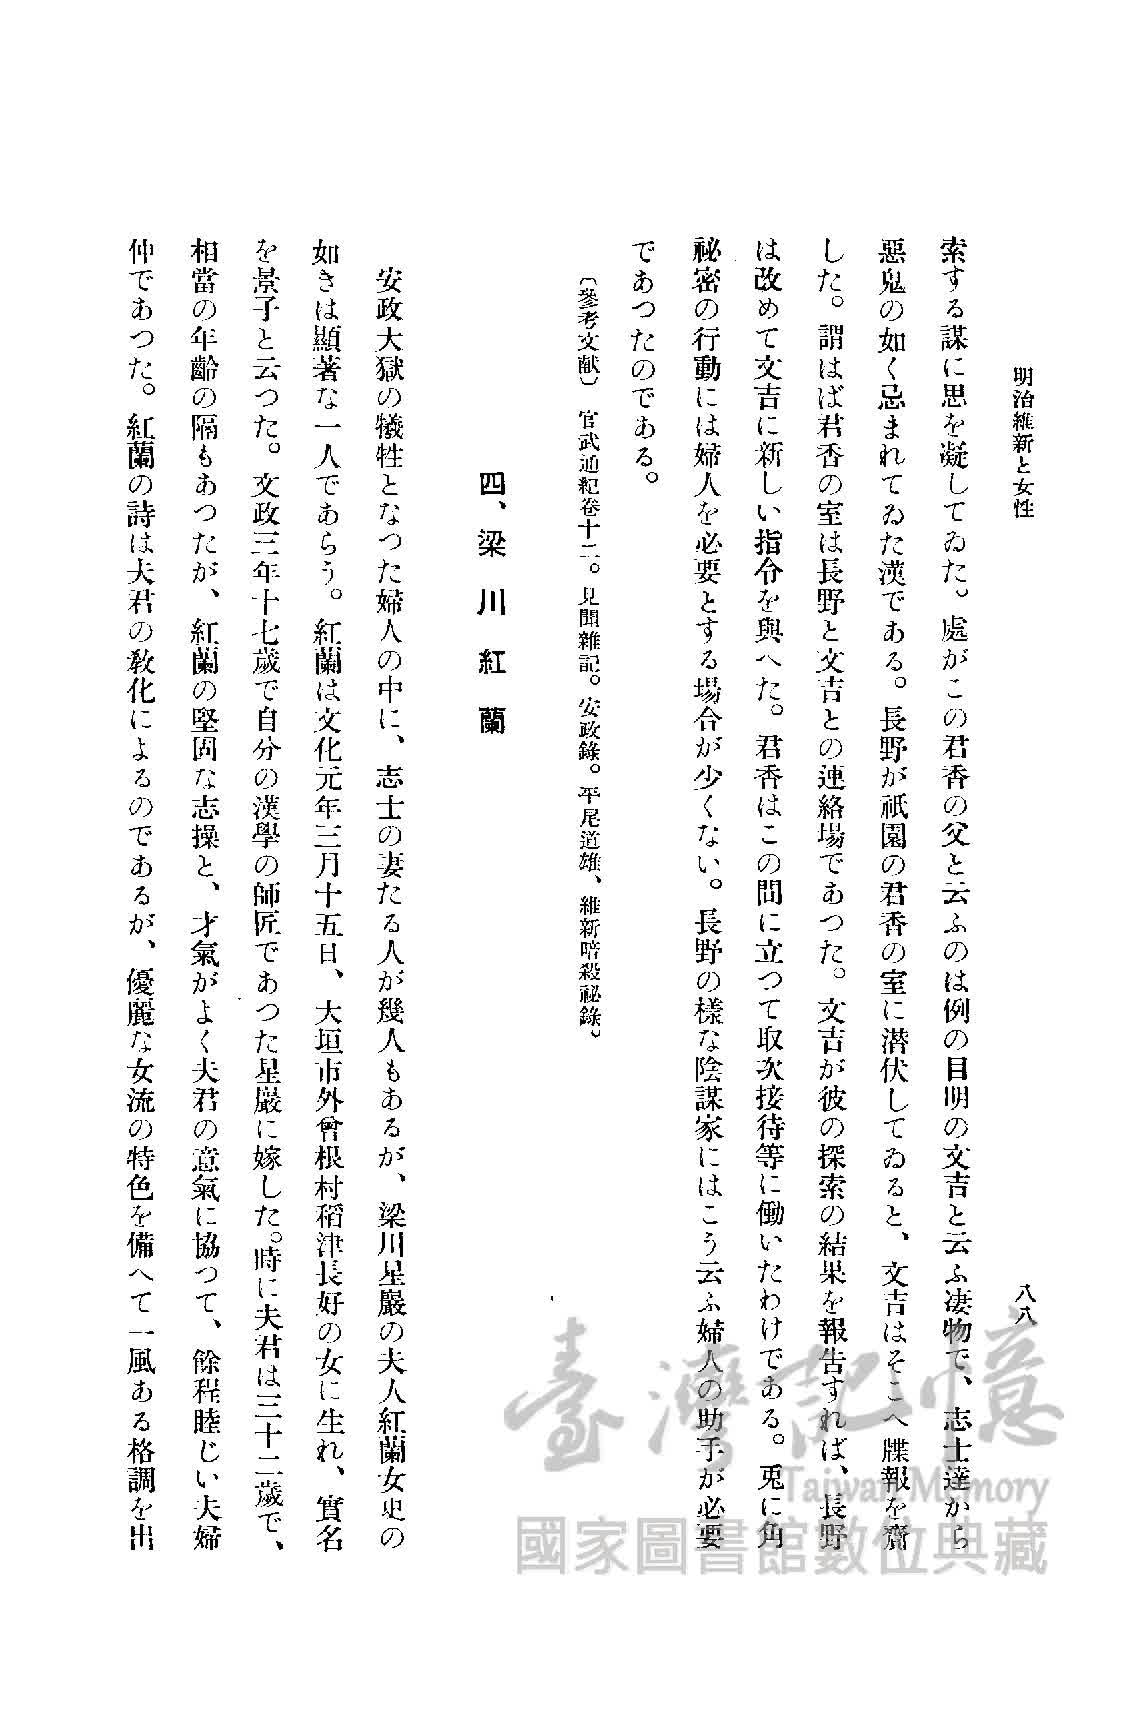 明治維新と女性
八八
索する謀に思を凝してゐた。處がこの君香の父と云ふのは例の目明の文吉と云ふ凄物で、志士達から
惡鬼の如く忌まれてゐた漢である。長野が祇園の君香の室に潜伏してゐると、文吉はそこへ牒報を齎
した。謂はば君香の室は長野と文吉との連絡場であつた。文吉が彼の探索の結果を報告すれば、長野
は改めて文吉に新しい指令を與へた。君香はこの間に立つて取次接待等に働いたわけである。兎に角
祕密の行動には婦人を必要とする場合が少くない。長野の樣な陰謀家にはこう云ふ婦人の助手が必要
であつたのである。
〔參考文献〕 官武通紀卷十二。見聞雜記。安政錄。平尾道雄、維新暗殺祕錄。
四、梁川紅蘭
安政大獄の犧牲となつた婦人の中に、志士の妻たる人が幾人もあるが、梁川星巖の夫人紅蘭女史の
如きは顯著な一人であらう。紅蘭は文化元年三月十五日、大垣市外曾根村稻津長好の女に生れ、實名
を景子と云つた。文政三年十七歲で自分の漢學の師匠であつた星巖に嫁した。時に夫君は三十二歲で、
相當の年齡の隔もあつたが、紅蘭の堅固な志操と、才氣がよく夫君の意氣に協つて、餘程睦じい夫婦
仲であつた。紅蘭の詩は夫君の敎化によるのであるが、優麗な女流の特色を備へて一風ある格調を出
臺灣記憶
Taiwan Memory
國家圖書館數位典藏